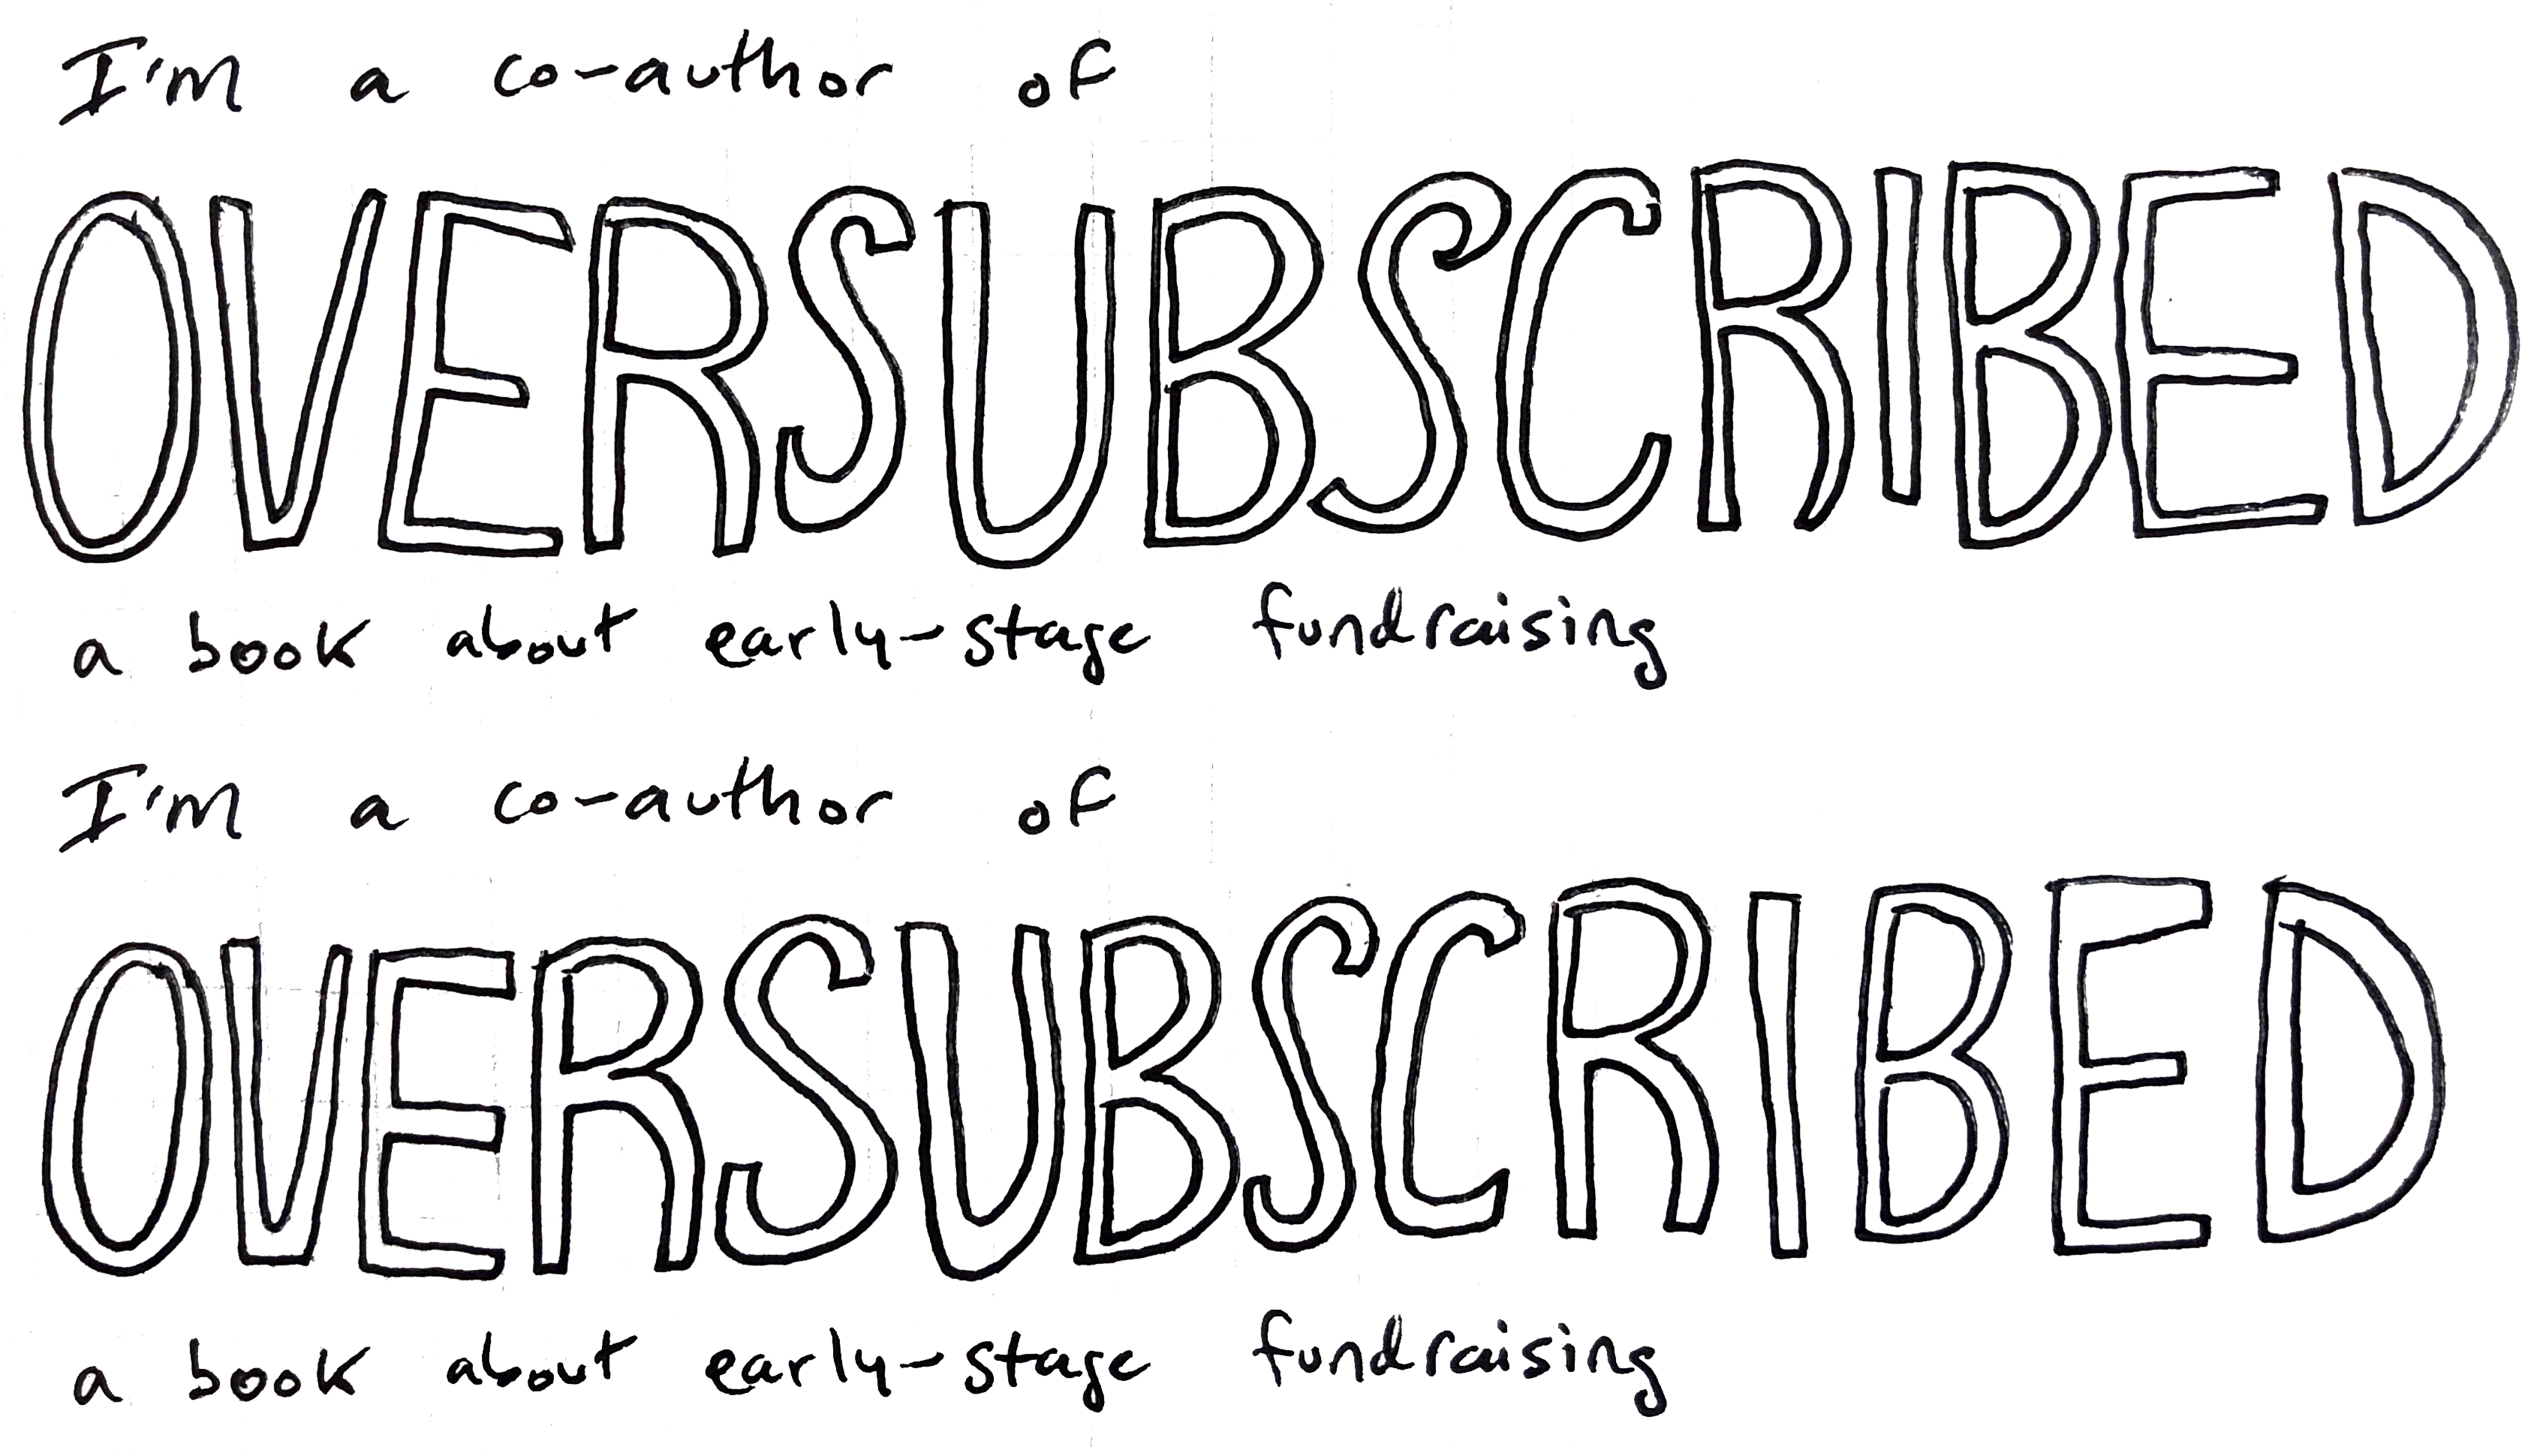 I'm a co-author of
OVERSUBSCRIBED
a book about early-stage fundraising
I'm a co-author of
OVERSUBSCRIBED
a book about early-stage fundraising